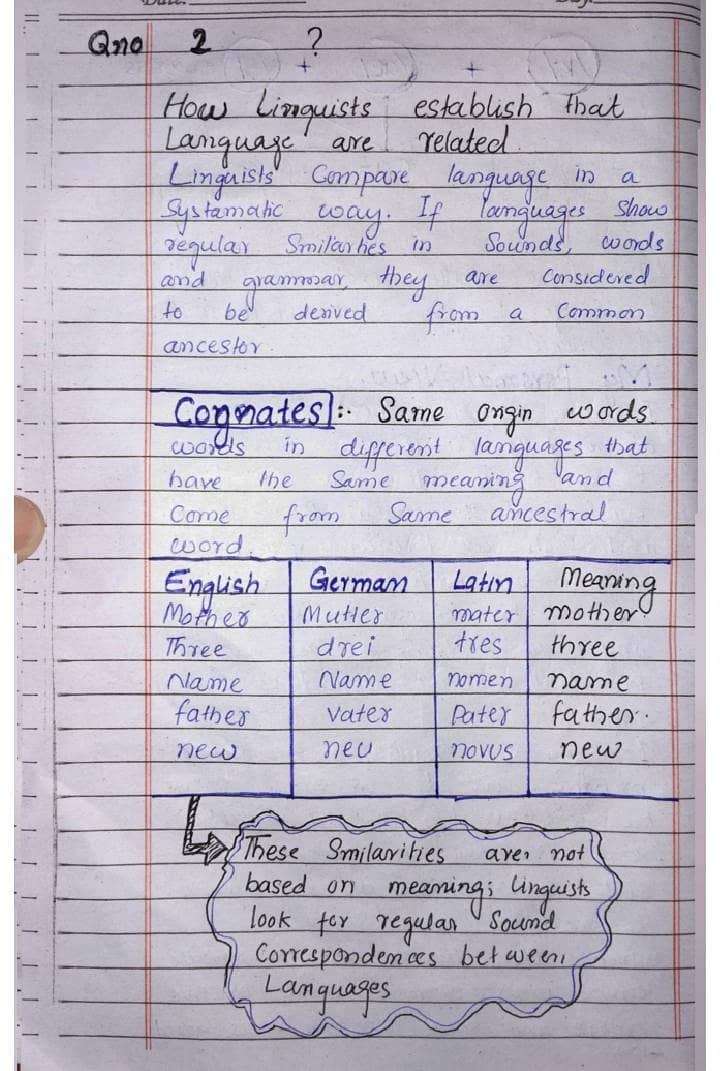 Qno 2 ?
How Linguists establish that
Language are related.
Linguists Compare language in a
Systamatic way. If languages Show
regular Smilarties in Sounds, words
and grammar, they are Considered
to be derived from a Common
ancestor.
Cognates :- Same origin words
words in different languages that
have the Same meaning and
Come from Same ancestral
word.
English German Latin Meaning
Mother Mutter mater mother
Three drei tres three
Name Name nomen name
father vater Pater father.
new neu novus new
These Smilarities are not
based on meaning; linguists
look for regular Sound
Correspondences between
Languages